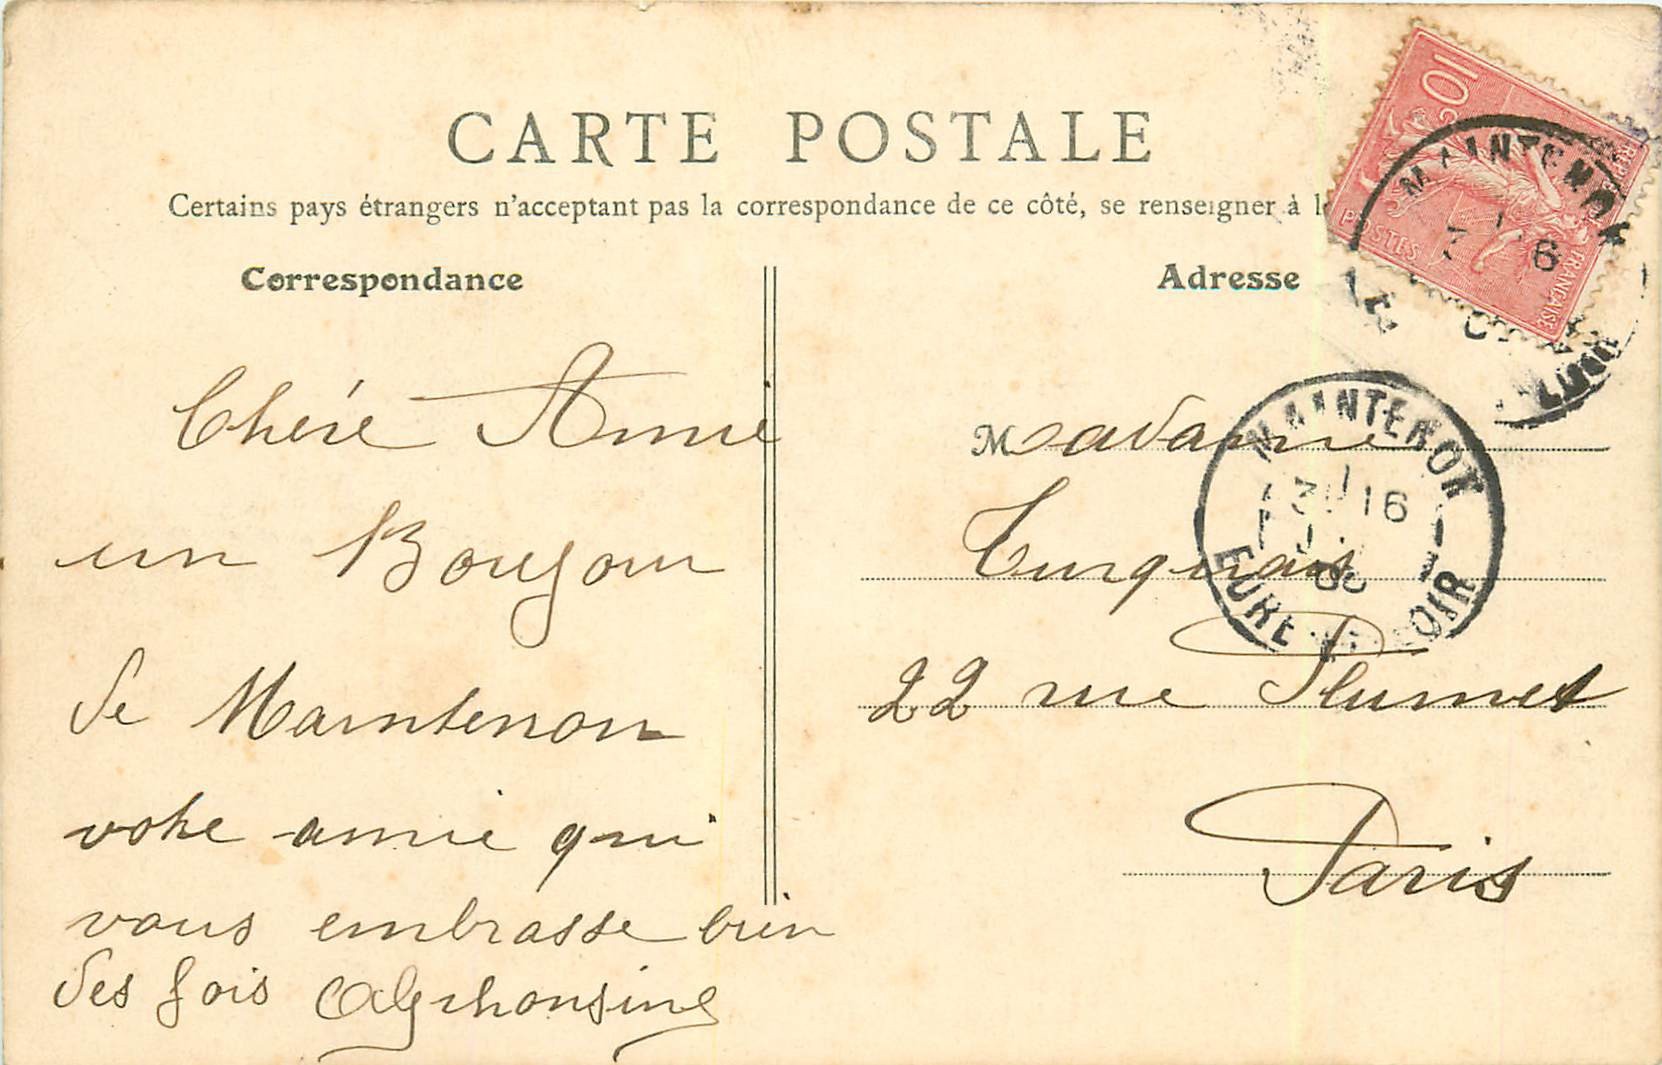 CARTE POSTALE
Certains pays étrangers n'acceptant pas la correspondance de ce côté, se renseigner à
Correspondance
Chére Amie
un Boujour
de Maintenon
votre amie qui
vous embrasse bien
des fois Alphonsine
Adresse
Madame
Turquois
22 rue Plumet
Paris
10
REPUBLIQUE FRANÇAISE
POSTES
MAINTENON
MAINTENON
16
EURE ET LOIR